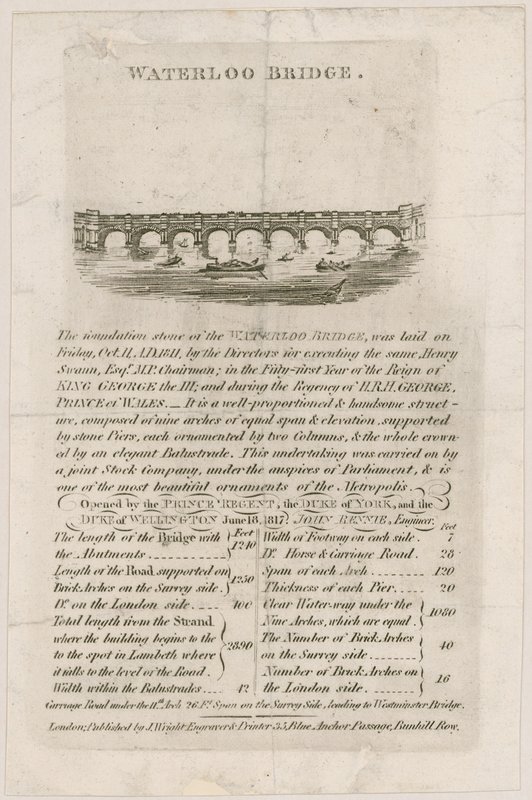 WATERLOO BRIDGE.
The foundation stone of the WATERLOO BRIDGE, was laid on
Friday, Oct. 11, A.D. 1811, by the Directors for executing the same, Henry
Swann, Esqr. M.P. Chairman; in the Fifty-first Year of the Reign of
KING GEORGE the III; and during the Regency of H.R.H. GEORGE,
PRINCE of WALES. — It is a well-proportioned & handsome struct-
ure, composed of nine arches of equal span & elevation, supported
by stone Piers, each ornamented by two Columns, & the whole crown-
ed by an elegant Balustrade. This undertaking was carried on by
a joint Stock Company, under the auspices of Parliament, & is
one of the most beautiful ornaments of the Metropolis.
Opened by the PRINCE REGENT, the DUKE of YORK, and the
DUKE of WELLINGTON June 18, 1817. JOHN RENNIE, Engineer.
Feet
The length of the Bridge with
the Abutments 1240
Length of the Road supported on
Brick Arches on the Surrey side. 1250
Do. on the London side. 400
Total length from the Strand
where the building begins to the
to the spot in Lambeth where
it falls to the level of the Road. 2890
Width within the Balustrades 42
Feet
Width of Footway on each side. 7
Do. Horse & Carriage Road. 28
Span of each Arch 120
Thickness of each Pier. 20
Clear Water-way under the
Nine Arches, which are equal. 1080
The Number of Brick Arches
on the Surrey side. 40
Number of Brick Arches on
the London side. 16
Carriage Road under the 11th. Arch 26 Ft. Span on the Surrey Side, leading to Westminster Bridge.
London; Published by J. Wright Engraver & Printer 35, Blue Anchor Passage, Bunhill Row.